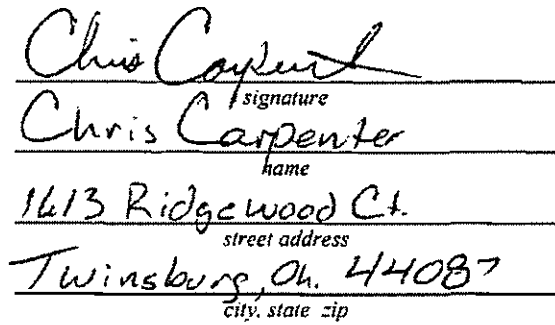 Chris Carpenter
signature
Chris Carpenter
name
1613 Ridgewood Ct.
street address
Twinsburg, Oh. 44087
city, state zip